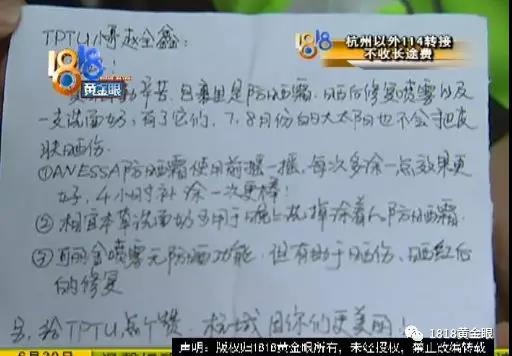 TPTU小哥赵全鑫:
1818
黄金眼
1818
杭州以外114转接
不收长途费
辛苦,包裹里是防晒霜、晒后修复喷雾以及
一支洗面奶,有了它们,7、8月份的大太阳也不会把皮
肤晒伤。
①ANESSA防晒霜使用前摇一摇,每次多涂一点效果更
好,4小时补涂一次更棒!
②相宜本草洗面奶可用于晚上洗掉涂着的防晒霜.
③可丽金喷雾无防晒功能,但有助于晒伤、晒红后
的修复
给TPTU点个赞 杭城因你们更美丽!
6月30日
声明:版权归1818黄金眼所有,未经授权,禁止改编转载
1818黄金眼